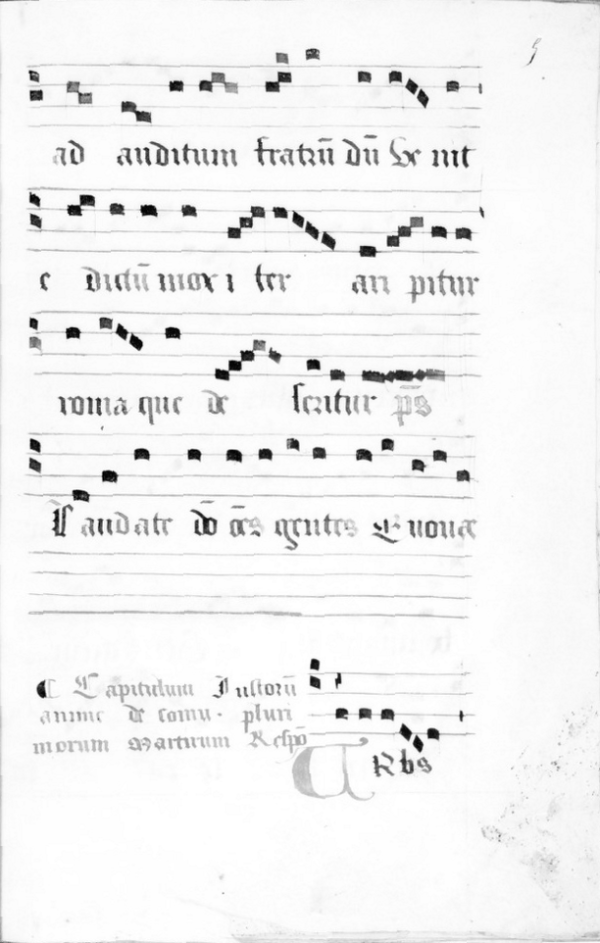 5
ad auditum fratrū dūm Ve nit
e dictū mox i ter ari pitur
roma que de feritur p̄s
Laudate dō oēs gentes Euouae
Capitulum Iustorū
anime de comu. pluri
morum Martirum Respō
URbs